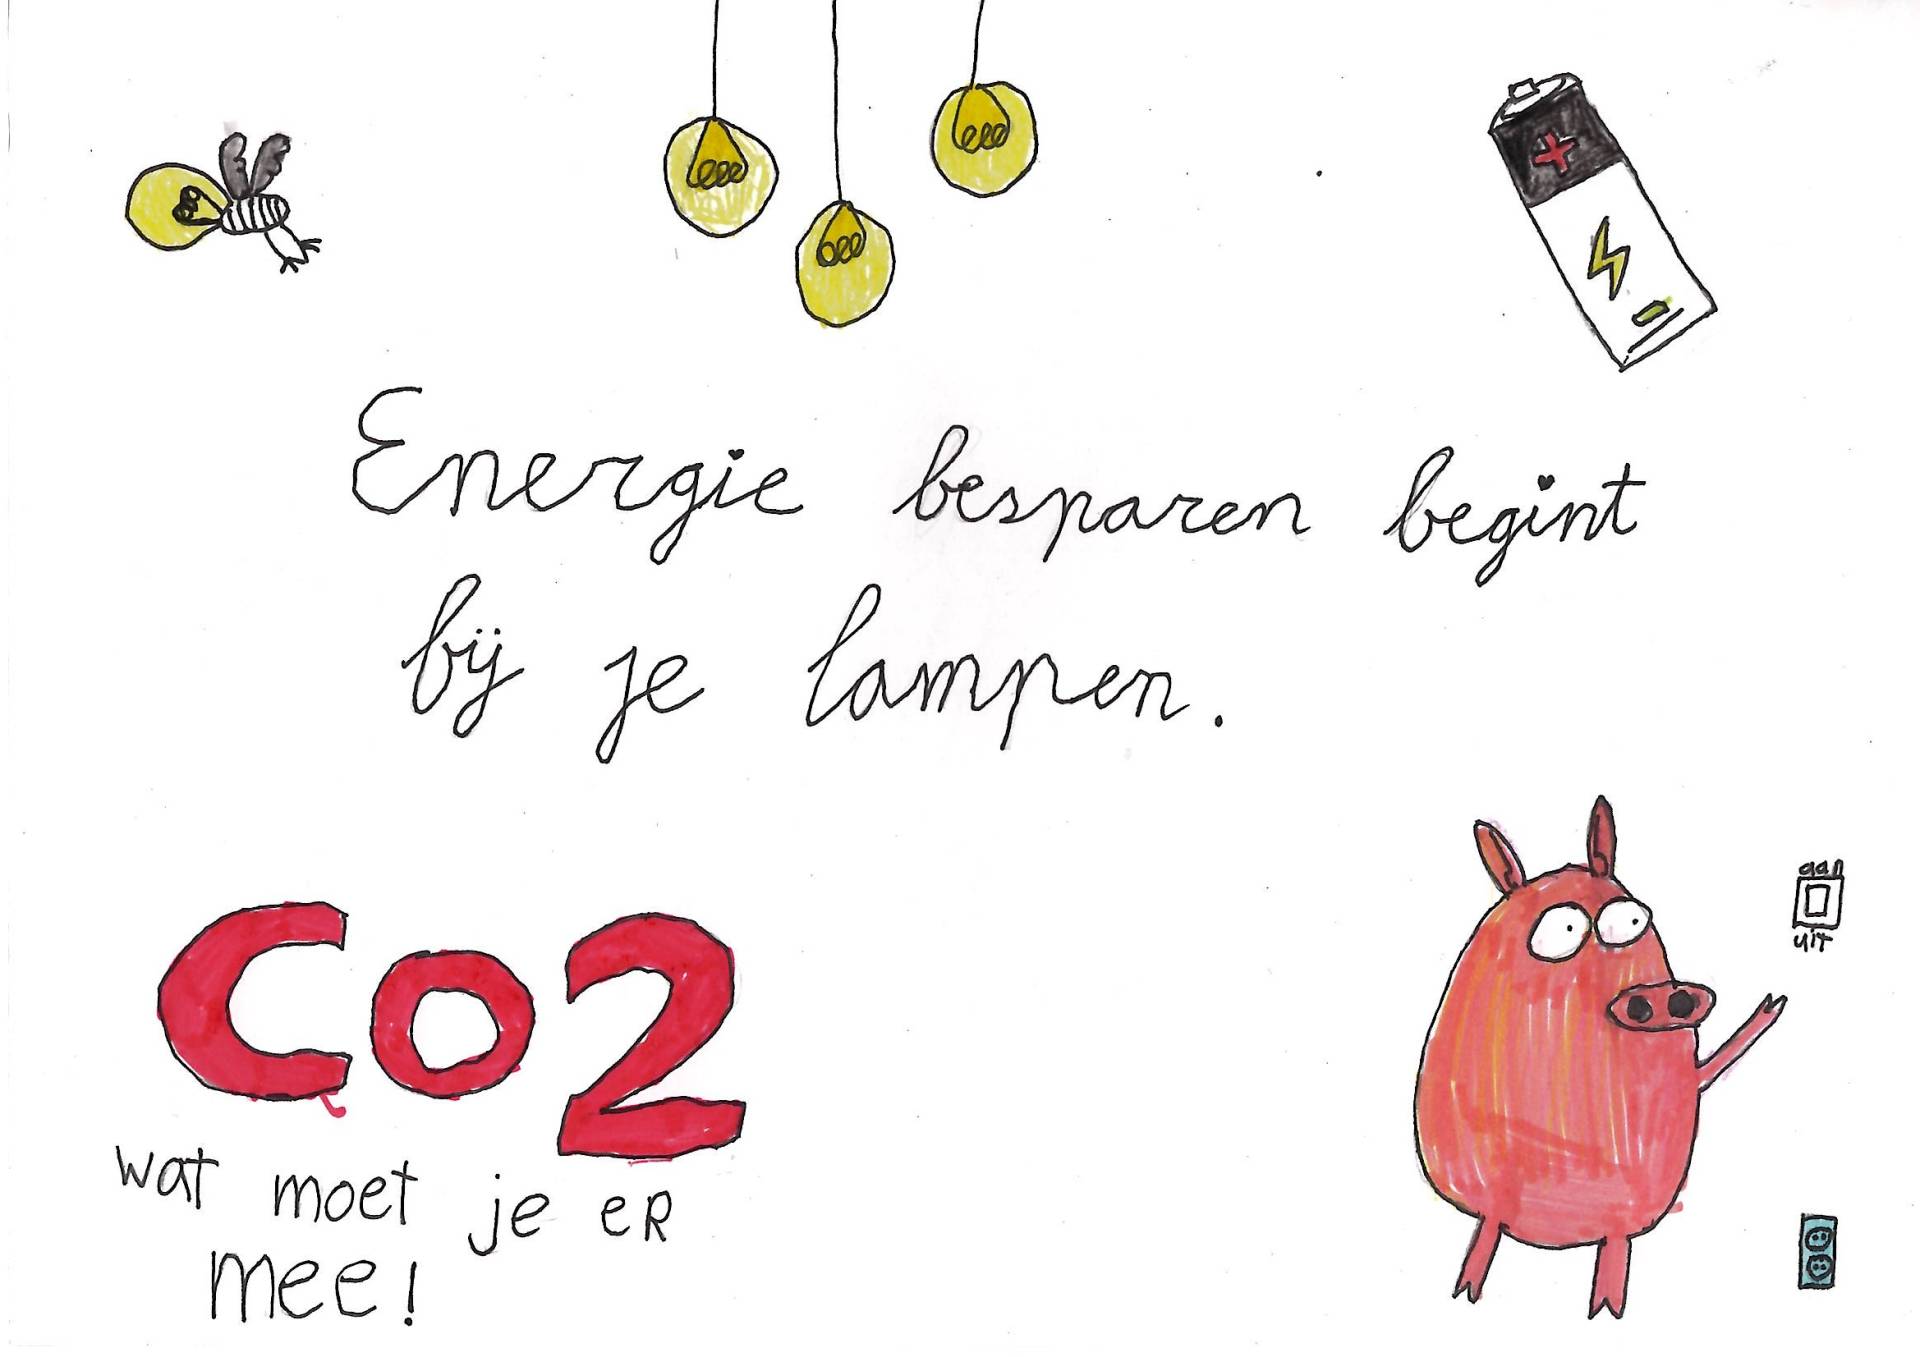 Energie besparen begint
bij je lampen.
Co2
wat moet je er
mee!
aan
uit